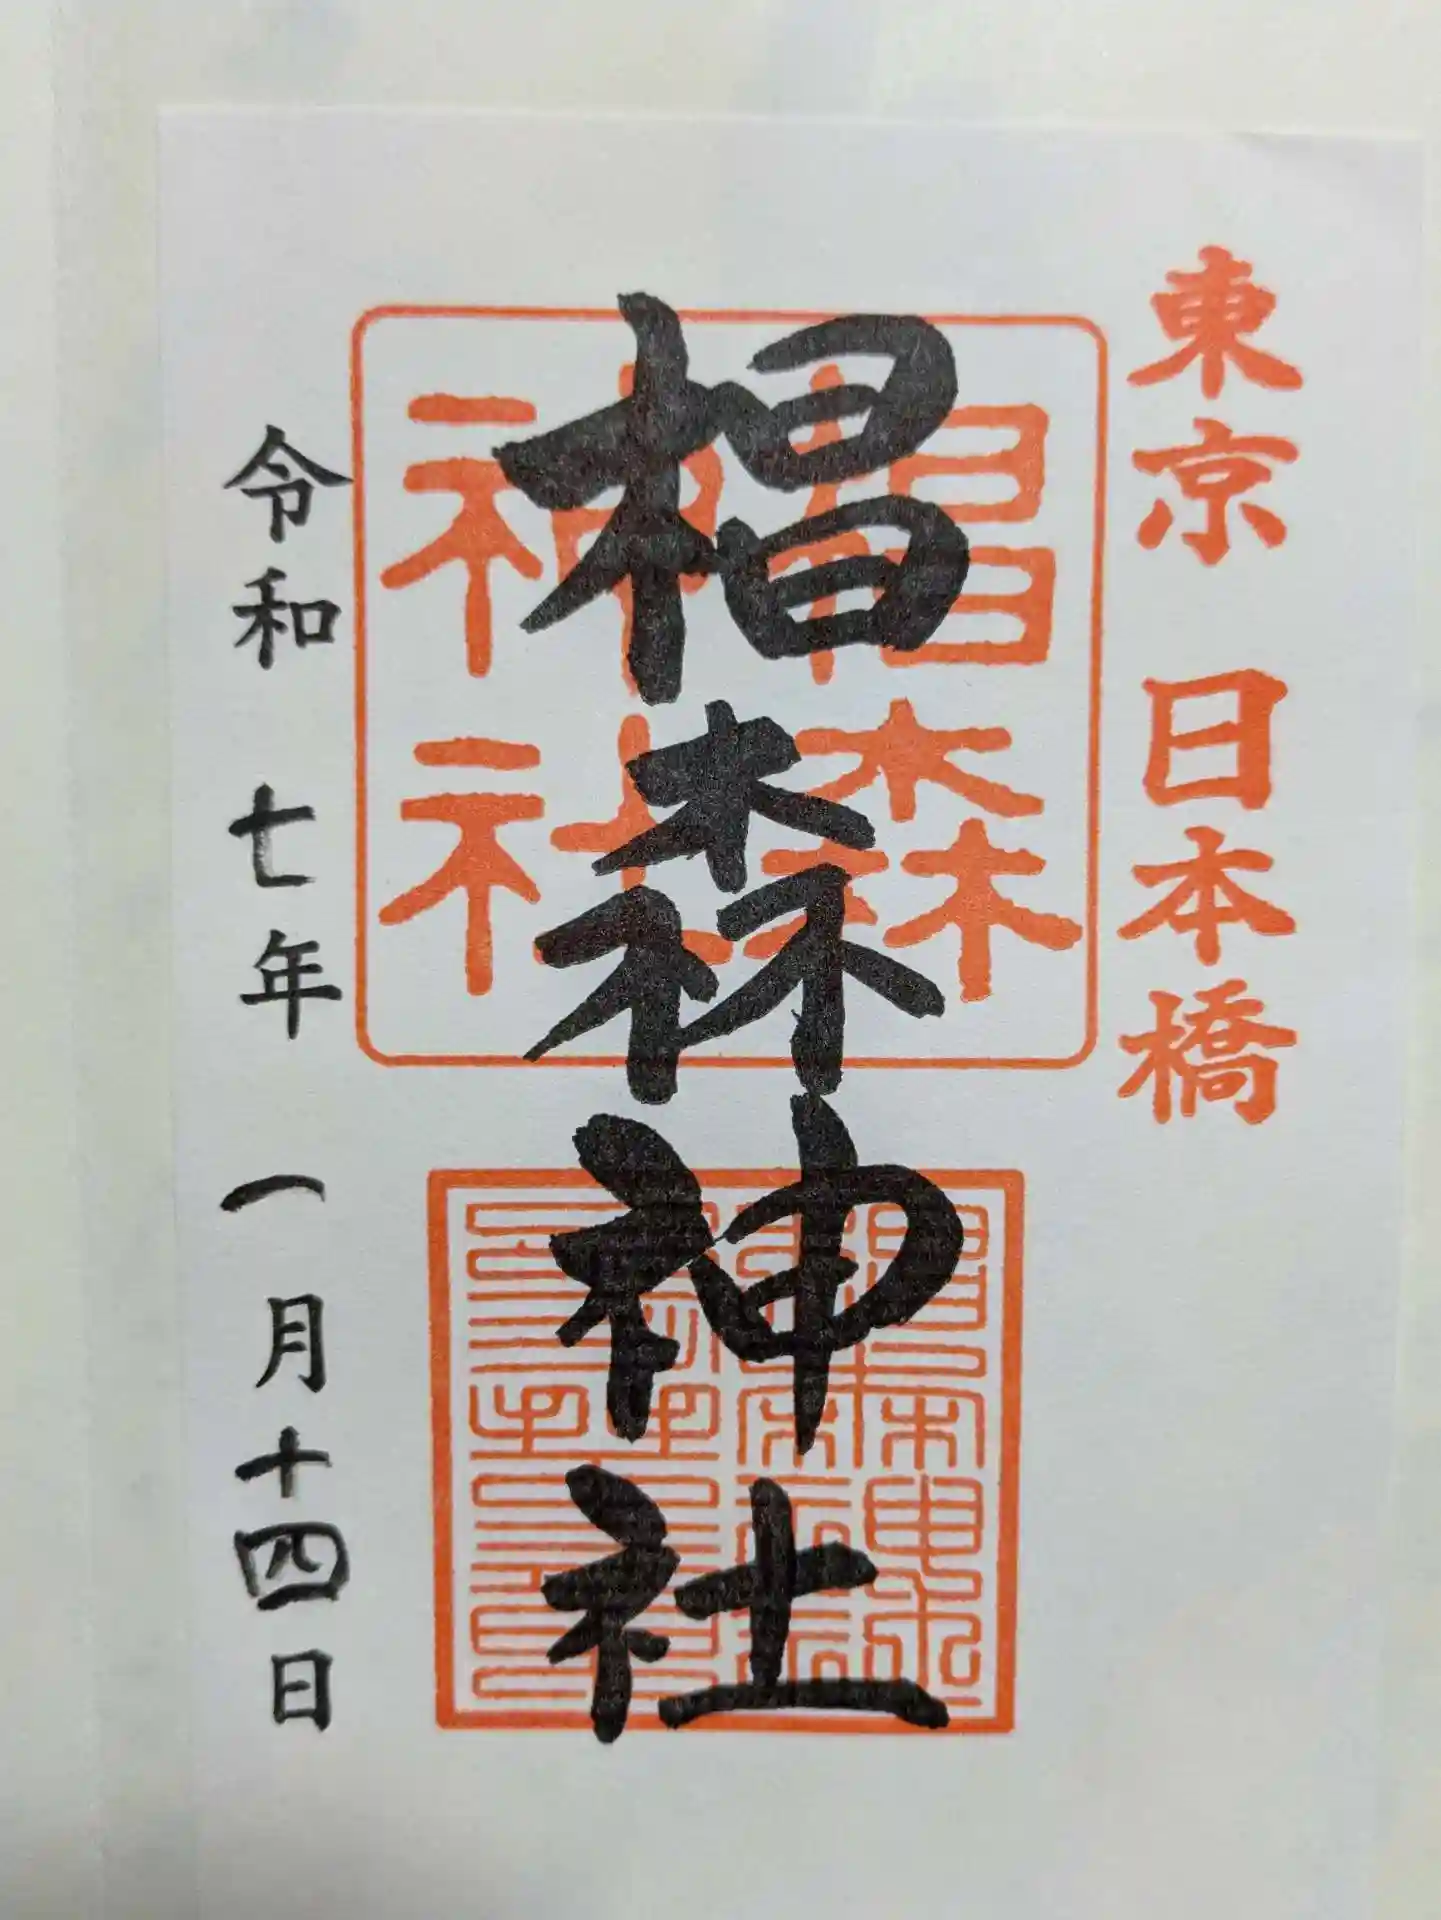 東京 日本橋
椙森神社
椙森
神社
令和 七年 一月十四日